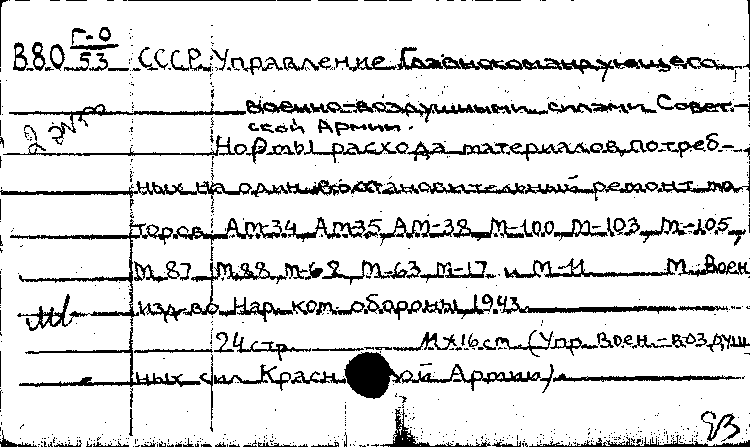 В80 Г-0/53 СССР Управление Главнокомандующего
военно-воздушными силами Совет-
ской Армии.
2 экз
Нормы расхода материалов, потреб-
ных на один восстановительный ремонт мо
торов АМ-34, АМ-35, АМ-38, М-100, М-103, М-105,
М-87, М-88, М-62, М-63, М-17 и М-11 М. Воен
изд-во Нар. ком. обороны 1943
24 стр. 11×16 см (Упр. Воен.-воздуш
ных сил Красн ой Армии).
83